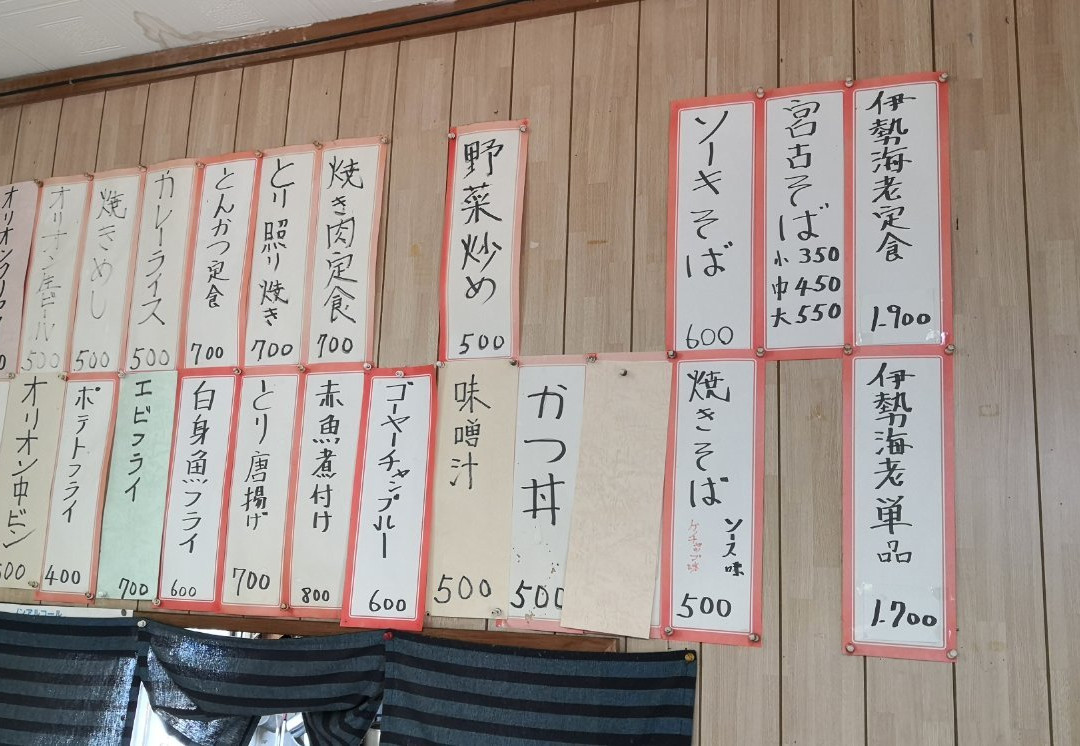 伊勢海老定食
1.900
宮古そば
小 350
中 450
大 550
ソーキそば
600
野菜炒め
500
焼き肉定食
700
とり照り焼き
700
とんかつ定食
700
カレーライス
500
焼きめし
500
オリオン生ビール
500
伊勢海老単品
1.700
焼きそば
ソース味
ケチャップ味
500
かつ丼
500
味噌汁
500
ゴーヤーチャンプルー
600
赤魚煮付け
800
とり唐揚げ
700
白身魚フライ
600
エビフライ
700
ポテトフライ
400
オリオン中ビン
500
ノンアルコール